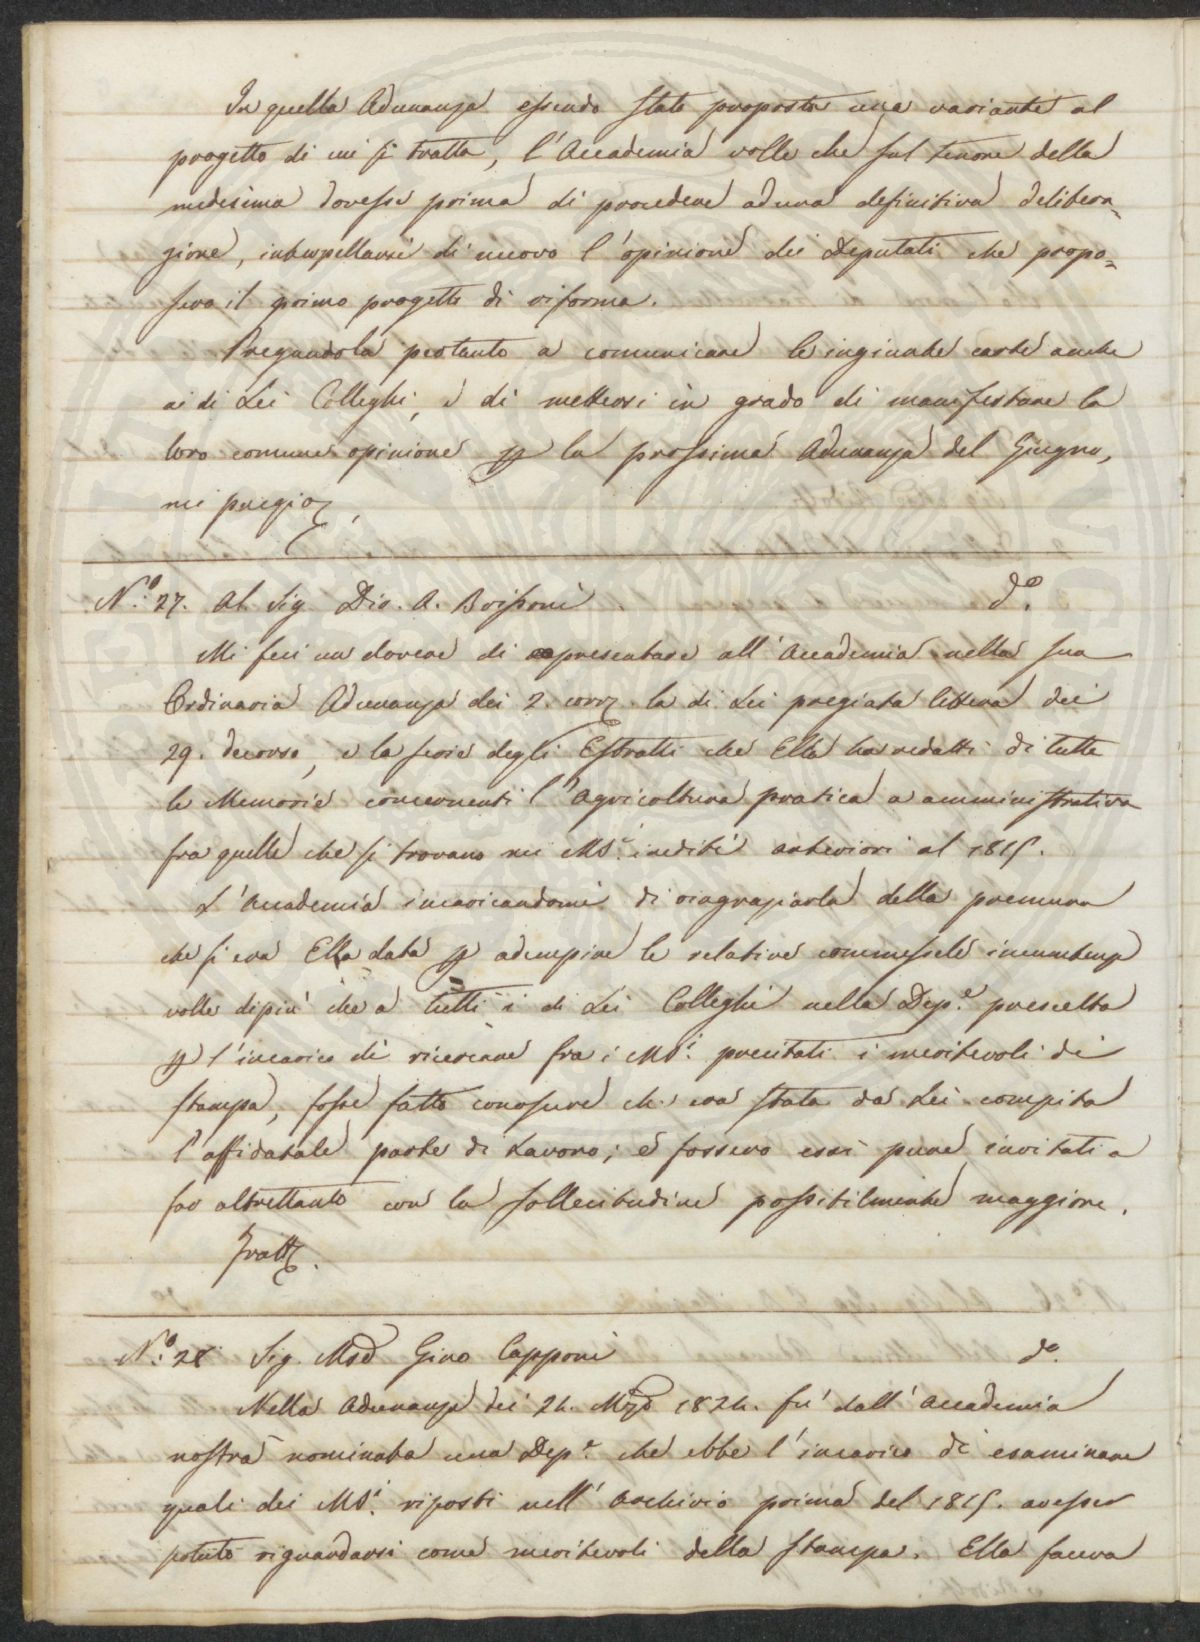 In quella Adunanza essendo stata proposta una variante al
progetto di cui si tratta, l'Accademia volle che sul tenore della
medesima dovesse prima di procedere ad una definitiva delibera=
zione, interpellarsi di nuovo l'opinione dei Deputati che propo=
sero il primo progetto di riforma.
Pregandola pertanto a comunicare le ingiunte carte anche
ai di Lei Colleghi, e di mettersi in grado di manifestare la
loro comune opinione p la prossima Adunanza del Giugno,
mi pregio,
N.° 27. Al Sig. Dio. A. d°.
Mi feci un dovere di presentare all'Accademia nella sua
Ordinaria Adunanza dei 2. corr la di Lei pregiata lettera dei
29. decorso, e la serie degli Estratti che Ella ha redatti di tutte
le Memorie concernenti l'Agricoltura pratica a amministrativa
fra quelle che si trovano nei MS.i inediti anteriori al 1815.
L'Accademia incaricandomi di ringraziarla della premura
che si era Ella data p adempire le relative commessele incumbenze
volle dipiù che a tutti i di Lei Colleghi nella Dep.e prescelta
p l'incarico di ricercare fra i MS.i precitati i meritevoli di
stampa, fosse fatto conoscere che era stata da Lei compita
l'affidatale parte di Lavoro; e fossero essi pure invitati a
far altrettanto con la sollecitudine possibilmente maggiore.
Fratt.
N.° 28 Sig. Gino Capponi d°.
Nella Adunanza dei 24. 1824. fu dall'Accademia
nostra nominata una Dep.e che ebbe l'incarico di esaminare
quali dei MS.i riposti nell'Archivio prima del 1815. avesser
potuto riguardarsi come meritevoli della stampa. Ella faceva